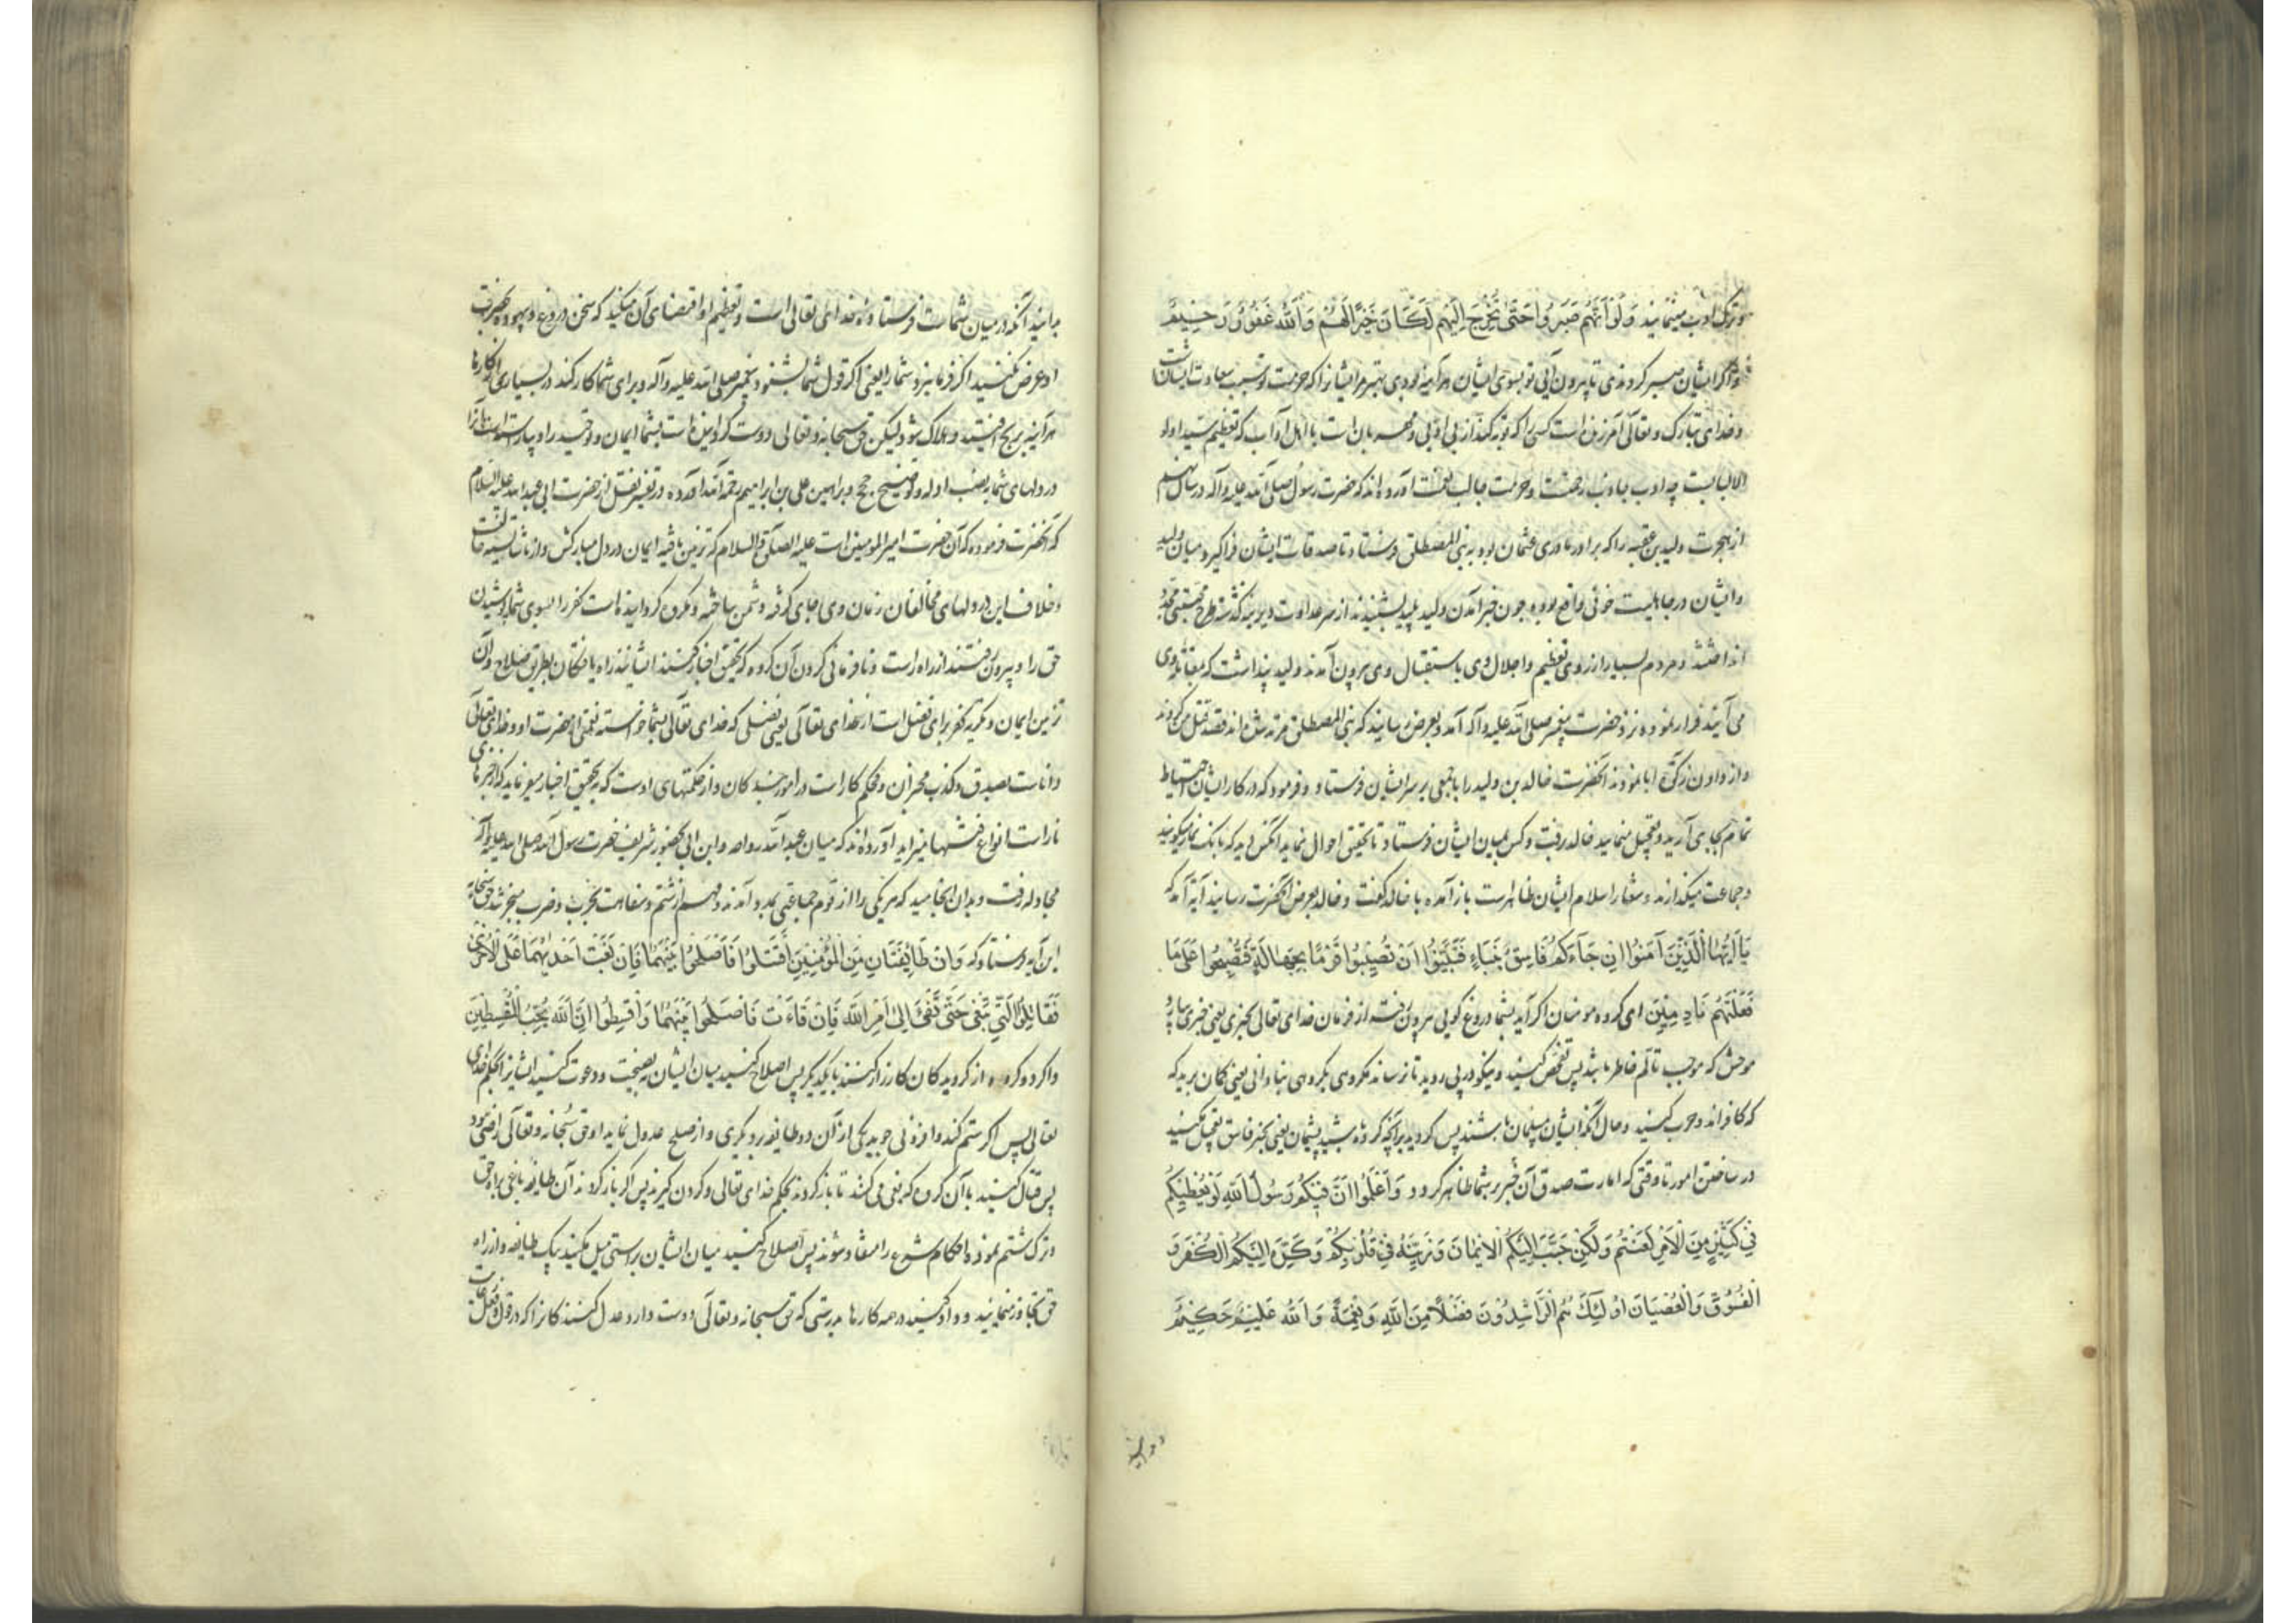 و ترک ادب مینمایند وَلَوْ أَنَّهُمْ صَبَرُوا حَتَّى تَخْرُجَ إِلَيْهِمْ لَكَانَ خَيْرًا لَهُمْ وَاللَّهُ غَفُورٌ رَحِيمٌ
و اگر ایشان صبر کردندی تا بیرون آیی تو بسوی ایشان هرآینه بودی بهتر مر ایشانرا که حرمت تو سبب سعادت ایشانست
و خدای تبارک و تعالی آمرزنده است کسی را که توبه کند از بی ادبی و مهربان است با اهل آداب که تعظیم سید اولو
الالباب چه ادب جاذب رحمتست و حرمت جالب نعمت آورده‌اند که حضرت رسول صلی الله علیه و آله در سال نهم
از هجرت ولید بن عقبه را که برادر مادری عثمان بود به بنی المصطلق فرستاد تا صدقات ایشان فراگیرد میان ولید
و ایشان در جاهلیت خونی واقع بود چون خبر آمدن ولید پلید بشنیدند از سر عداوت دیرینه گذشته طرح محبتی مجدد
انداختند و مردم بسیار از روی تعظیم و اجلال وی باستقبال وی بیرون آمدند ولید پنداشت که بمقاتله وی
می آیند فرار نموده نزد حضرت پیغمبر صلی الله علیه و آله آمد و بعرض رسانید که بنی المصطلق مرتد شده‌اند قصد قتل من کردند
و از دادن زکوة ابا نمودند آنحضرت خالد بن ولید را با جمعی بر سر ایشان فرستاد و فرمود که در کار ایشان احتیاط
تمام بجای آرید و تعجیل منمایید خالد رفت و کس بمیان ایشان فرستاد تا تحقیق احوال نماید آنکس دید که بانک نماز میگویند
و جماعت میگذارند و شعار اسلام ایشان ظاهر است باز آمده با خالد گفت و خالد بعرض آنحضرت رسانید آیه آمد که
يَا أَيُّهَا الَّذِينَ آمَنُوا إِنْ جَاءَكُمْ فَاسِقٌ بِنَبَاءٍ فَتَبَيَّنُوا أَنْ تُصِيبُوا قَوْمًا بِجَهَالَةٍ فَتُصْبِحُوا عَلَى مَا
فَعَلْتُمْ نَادِمِينَ ای گروه مومنان اگر آید بشما دروغ گویی بیرون رفته از فرمان خدای تعالی بخبری یعنی خبری بیارد
موحش که موجب تألم خاطر باشد پس تفحص کنید و نیکو در پی روید تا نرسانند مکروهی بگروهی بنادانی یعنی گمان برید که
که کافرند و حرب کنید و حال آنکه ایشان مسلمان باشند پس گردید برآنچه کرده باشید پشیمان یعنی بخبر فاسق تعجیل مکنید
در ساختن امور تا وقتی که امارت صدق آن خبر بر شما ظاهر گردد وَاعْلَمُوا أَنَّ فِيكُمْ رَسُولَ اللَّهِ لَوْ يُطِيعُكُمْ
فِي كَثِيرٍ مِنَ الْأَمْرِ لَعَنِتُّمْ وَلَكِنَّ حَبَّبَ إِلَيْكُمُ الْإِيمَانَ وَزَيَّنَهُ فِي قُلُوبِكُمْ وَكَرَّهَ إِلَيْكُمُ الْكُفْرَ وَ
الْفُسُوقَ وَالْعِصْيَانَ أُولَئِكَ هُمُ الرَّاشِدُونَ فَضْلًا مِنَ اللَّهِ وَنِعْمَةً وَاللَّهُ عَلِيمٌ حَكِيمٌ
و بدانید
بدانید آنکه در میان شماست فرستاده خدای تعالی است و تعظیم او اقتضای آن میکند که سخن دروغ و بیهوده بحضرت
او عرض نکنید اگر فرمان برد شما را یعنی اگر قول شما بشنود پیغمبر صلی الله علیه و آله و برای شما کار کند در بسیاری از کارها
هرآینه برنج افتید و هلاک شوید ولیکن حق سبحانه و تعالی دوست گردانیده است بشما ایمان و توحید را و بیاراسته است آنرا
در دلهای شما بنصب ادله و توضیح حجج و براهین علی بن ابراهیم رحمة الله آورده در تفسیر نقل از حضرت ابی عبدالله علیه السلام
که آنحضرت فرموده که آن حضرت امیرالمومنین است علیه الصلوة و السلام که تزیین یافته ایمان در دل مبارکش و از ناشایسته
و خلاف این در دلهای مخالفان زمان وی جای گرفته و دشمن ساخته و مکروه گردانیده است کفر را بسوی شما پوشیدن
حق را و بیرون رفتند از راه راست و نافرمانی کردن آن گروه که تحقیق اخبار کنند ایشانند راه یافتگان بطریق صلاح و آن
تزیین ایمان و تکریه کفر برای فضل است از خدای تعالی یعنی فضلی که خدای تعالی بشما خواسته نعمتی از حضرت او و خدای تعالی
داناست بصدق و کذب مخبران و محکم کار است در امور بندگان و از حکمتهای اوست که بتحقیق اخبار میفرماید که از خبرهای
ناراست انواع فتنها میزاید آورده‌اند که میان عبد الله رواحه و ابن ابی بحضور شریف حضرت رسول الله صلی الله علیه و آله
مجادله رفت و بدان انجامید که هر یکی را از قوم جماعتی بمدد آمدند و مهم از شتم و سفاهت بحرب و ضرب منجر شد حق سبحانه
این آیه فرستاد که وَإِنْ طَائِفَتَانِ مِنَ الْمُؤْمِنِينَ اقْتَتَلُوا فَأَصْلِحُوا بَيْنَهُمَا فَإِنْ بَغَتْ إِحْدَاهُمَا عَلَى الْأُخْرَى
فَقَاتِلُوا الَّتِي تَبْغِي حَتَّى تَفِيءَ إِلَى أَمْرِ اللَّهِ فَإِنْ فَاءَتْ فَأَصْلِحُوا بَيْنَهُمَا وَأَقْسِطُوا إِنَّ اللَّهَ يُحِبُّ الْمُقْسِطِينَ
و اگر دو گروه از گرویدگان کارزار کنند با یکدیگر پس اصلاح کنید میان ایشان بنصیحت و دعوت کنید ایشانرا بحکم خدای
تعالی پس اگر ستم کند و افزونی جوید یکی از آن دو طایفه بر دیگری و از صلح عدول نماید او حق سبحانه و تعالی راضی نبود
پس قتال کنید با آن گروه که بغی می کنند تا باز گردند بحکم خدای تعالی و گردن گیرند پس اگر باز گردند آن طایفه باغی براه حق
و ترک ستم نمودند احکام شرع را منقاد شوند پس اصلاح کنید میان ایشان براستی میل مکنید بیک طایفه و از راه
حق تجاوز منمایید و داد کنید در همه کارها بدرستی که حق سبحانه و تعالی دوست دارد عدل کنندگانرا که در قول و فعل